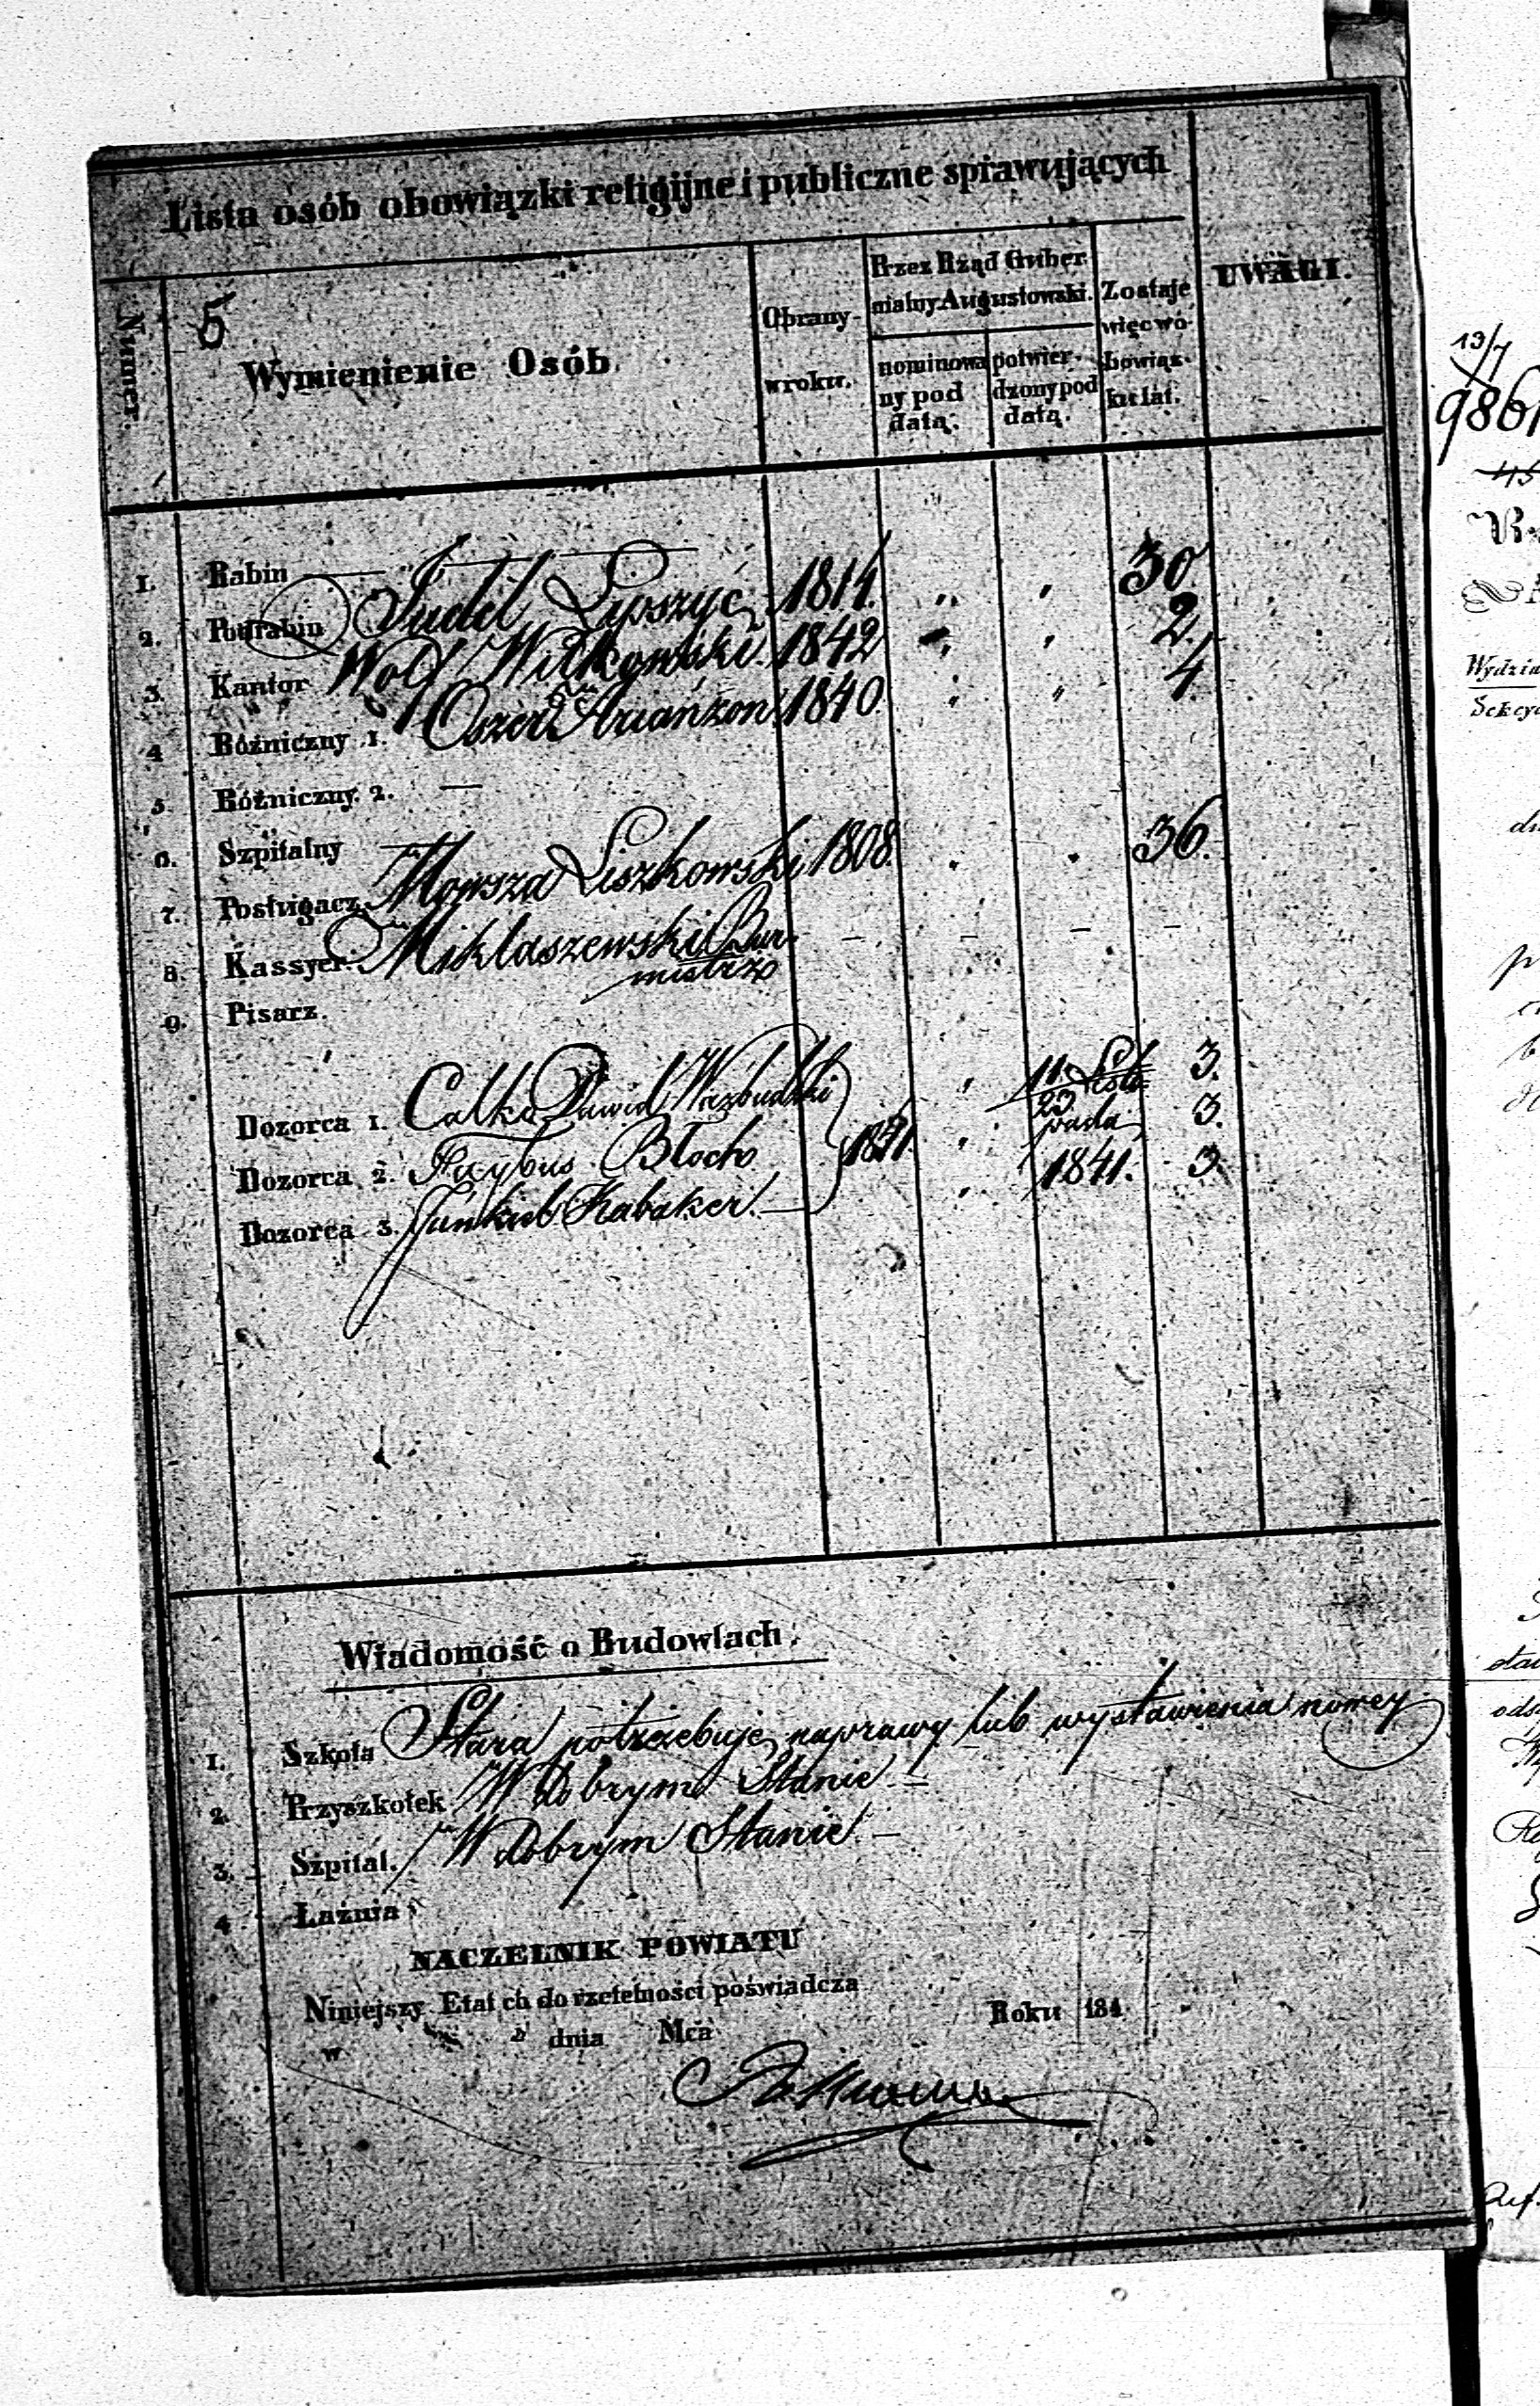 Lista osób obowiązki religijne i publiczne sprawujących
Numer.
5
Wymienienie Osób.
Obrany
w roku.
Przez Rząd Guber
nialny Augustowski.
nominowa
ny pod
datą.
potwier-
dzony pod
datą.
Zostaje
więc w o-
bowiąz-
ku lat.
UWAGI.
1. Rabin
2. Podrabin Judel Lipszyc 1814. 30.
3. Kantor Wolf Witkowski. 1842 2.
4. Bóżniczny 1. Oszer Arianzon 1840 4.
5. Bóżniczny. 2. —
6. Szpitalny —
7. Posługacz. Mowsza Liszkowski 1808. 36.
8. Kassyer. Miklaszewski Bur-
mistrz
9. Pisarz.
Dozorca 1. Calka Dawid 11/23 Listo- 3.
Dozorca 2. Błoch 1841. pada 3.
Dozorca 3. Jankiel Kabaker. 1841. 3.
Wiadomość o Budowlach.
1. Szkoła Stara potrzebuje naprawy lub wystawienia nowey
2. Przyszkołek W dobrym Stanie. —
3. Szpital. W dobrym Stanie. —
4. Łaźnia
NACZELNIK POWIATU
Niniejszy Etat co do rzetelności poświadcza
w dnia Mca Roku 184
19/7
986
45
Wydzia
Sekcy